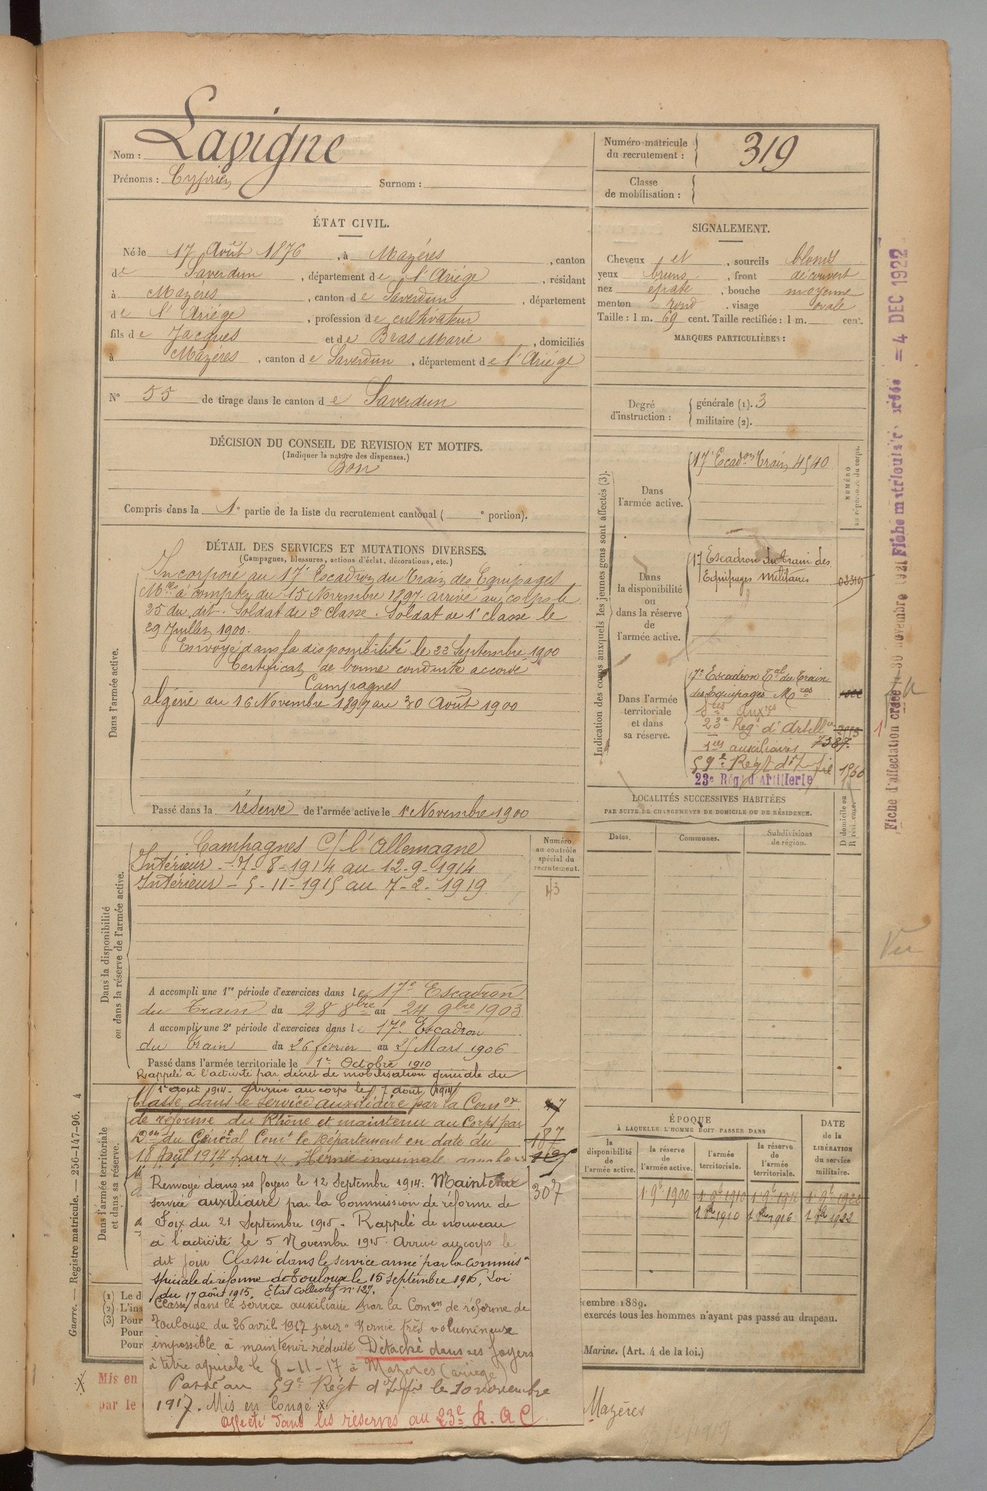 Nom : Lavigne
Prénoms : Cyprien Surnom :
Numéro matricule du recrutement : 319
Classe de mobilisation :
ÉTAT CIVIL.
Né le 17 Août 1876, à Mazères, canton
de Saverdun, département de l'Ariège, résidant
à Mazères, canton de Saverdun, département
de l'Ariège, profession de cultivateur
fils de Jacques et de Bras Marie, domiciliés
à Mazères, canton de Saverdun, département de l'Ariège
N° 55 de tirage dans le canton de Saverdun
SIGNALEMENT.
Cheveux et, sourcils blonds
yeux bruns, front découvert
nez épaté, bouche moyenne
menton rond, visage ovale
Taille : 1 m. 69 cent. Taille rectifiée : 1 m. cent.
MARQUES PARTICULIÈRES :
Degré d'instruction : générale (1). 3
militaire (2).
DÉCISION DU CONSEIL DE REVISION ET MOTIFS.
(Indiquer la nature des dispenses.)
Bon
Compris dans la 1e partie de la liste du recrutement cantonal ( e portion).
DÉTAIL DES SERVICES ET MUTATIONS DIVERSES.
(Campagnes, blessures, actions d'éclat, décorations, etc.)
Dans l'armée active.
Incorporé au 17e Escadron du Train des Equipages
Mres à compter du 15 Novembre 1897 arrivé au corps le
25 du dit. Soldat de 2e classe. Soldat de 1e classe le
29 Juillet 1900.
Envoyé dans la disponibilité le 22 Septembre 1900
Certificat de bonne conduite accordé
Campagnes
Algérie du 16 Novembre 1897 au 30 Août 1900
Passé dans la réserve de l'armée active le 1e Novembre 1900
Indication des corps auxquels les jeunes gens sont affectés (3).
Dans l'armée active.
17e Escadron Train 4540
NUMÉRO
Dans la disponibilité ou dans la réserve de l'armée active.
17 Escadron du train des
Equipages Militaires
Dans l'armée territoriale et dans sa réserve.
17e Escadron Tal du Train
des Equipages Mres
23e Reg. d'Artill
auxiliaires 7387
59e Régt d'Inf 1860
23e Rég d'Artillerie
LOCALITÉS SUCCESSIVES HABITÉES
PAR SUITE DE CHANGEMENTS DE DOMICILE OU DE RÉSIDENCE.
Dates. Communes. Subdivisions de région.
Dans la disponibilité ou dans la réserve de l'armée active.
Campagnes C/ l'Allemagne
Intérieur - 7-8-1914 au 12-9-1914
Intérieur - 5-11-1915 au 7-2-1919
Numéro au contrôle spécial du recrutement.
A accompli une 1re période d'exercices dans le 17e Escadron
du Train du 28 8bre au 24 9bre 1903
A accompli une 2e période d'exercices dans le 17e Escadron
du Train du 26 février au 25 Mars 1906
Passé dans l'armée territoriale le 1er Octobre 1910
Rappelé à l'activité par décret de mobilisation générale du
1e août 1914. Arrivé au corps le 7 août 1914
Dans l'armée territoriale et dans sa réserve.
Classé dans le service auxiliaire par la Comon
de réforme du Rhône et maintenu au Corps par
Don du Général Comt le Département en date du
18 Août 1914 pour
187
307
Renvoyé dans ses foyers le 12 Septembre 1914. Maintenu
service auxiliaire par la Commission de réforme de
Foix du 21 Septembre 1915. Rappelé de nouveau
à l'activité le 5 Novembre 1915. Arrivé au corps le
dit jour Classé dans le service armé par la Commis
spéciale de réforme de Toulouse le 15 septembre 1916. Loi
du 17 août 1915. Etat collectif n° 127.
Classé dans le service auxiliaire par la Comon de réforme de
Toulouse du 26 avril 1917 pour "Hernie très volumineuse
impossible à maintenir réduite Détaché dans ses foyers
à titre agricole le 8-11-17 à Mazères (Ariège)
Passé au 59e Régt d'Inf le 10 novembre
1917. Mis en congé
affecté dans les réserves au 23e R.A.C
ÉPOQUE
À LAQUELLE L'HOMME DOIT PASSER DANS
la disponibilité de l'armée active. la réserve de l'armée active. l'armée territoriale. la réserve de l'armée territoriale.
DATE de la LIBÉRATION du service militaire.
1 9e 1900
1 8bre 1910 1 8bre 1916 1 8bre 1922
(1) Le d
(2) L'ins
(3) Pour
Pour
Pour
vembre 1889.
exercés tous les hommes n'ayant pas passé au drapeau.
Marine. (Art. 4 de la loi.)
Mis en
par le
Mazères
Guerre. — Registre matricule. — 256-147-96. 4
Vu
Fiche matriculaire créée = 4 DEC 1922
Fiche d'affectation créée